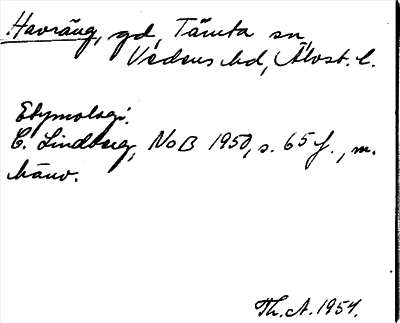 Havräng, gd, Tämta sn,
Vedens hd, Älvsb. l.
Etymologi.
C. Lindberg, NoB 1950, s. 65 f., m.
hänv.
Th. A. 1954.